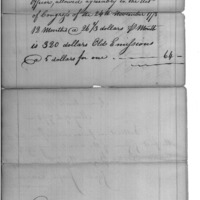 Officer, allowed agreeably to the Act
of Congress of the 24th November 1778
13 Months @ 26 2/3 dollars P Month
is 320 dollars Old Emissions
@ 5 dollars for one 64